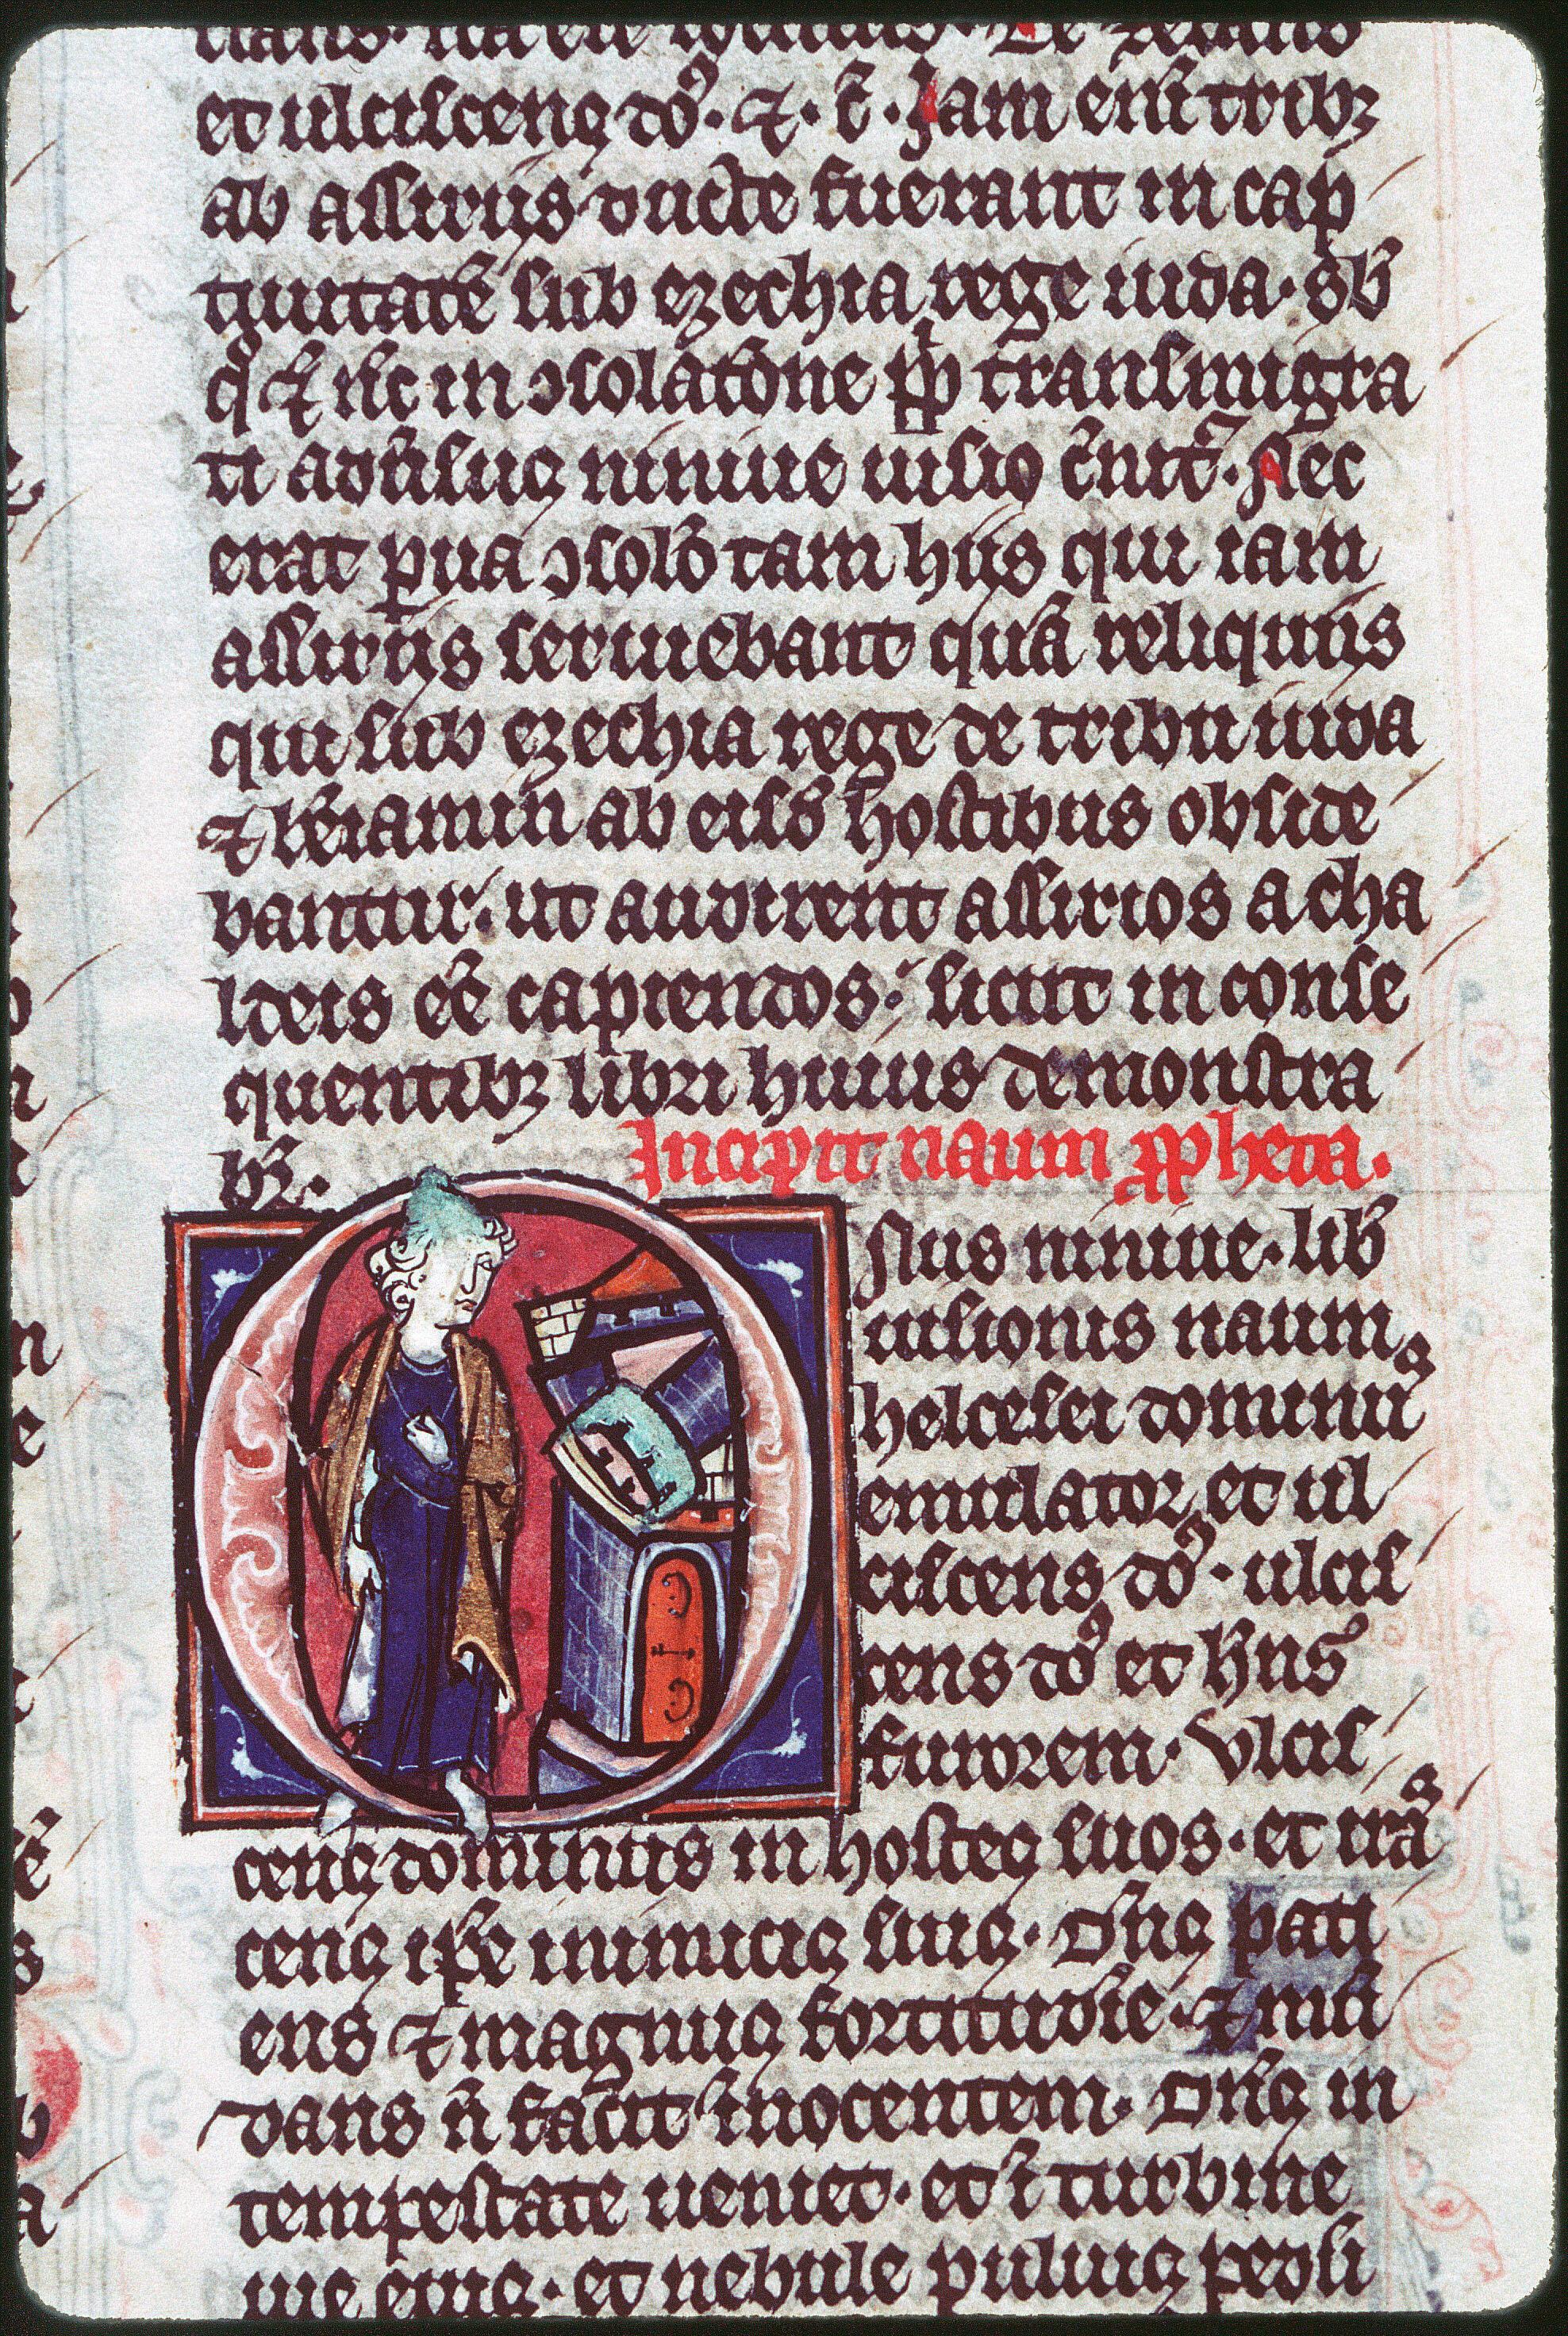 et ulciscens dꝰ. ⁊. c̄. Jam eni̅ tribꝫ
ab assiriis ducte fuerant in cap
tiuitatē sub ezechia rege iuda. sb̄
q° ⁊ nc̄ in ꝯsolatōne pp̄li transmigra
ti adu̅sus niniue uisio c̄nit᷑. Nec
erat ꝑua ꝯsolo̅ tam hiis qui iam
assiriis seruiebant quā reliquiis
qui sub ezechia rege de tribu iuda
⁊ beniamin ab eisdē hostibus obside
bantur. ut audirent assirios a cha
ldeis eē capiendos. sicut in conse
quentibꝫ libri huius demonstra
bit᷑. Incipit naum ꝓpheta.
Onus niniue. lib̄
uisionis naum
helcesei dominus
emulator et ul
ciscens dꝰ. ulcis
cens dn̅s et hn̅s
furorem. Vlcis
cens dominus in hostes suos. et irascens
ip̄e inimicis suis. Dn̅s pati
ens ⁊ magnus fortitudīe. ⁊ mū
dans n̄ faciet īnocentem. Dn̅s in
tempestate ueniet. et ī turbine
uie eius. et nebule puluis pedū